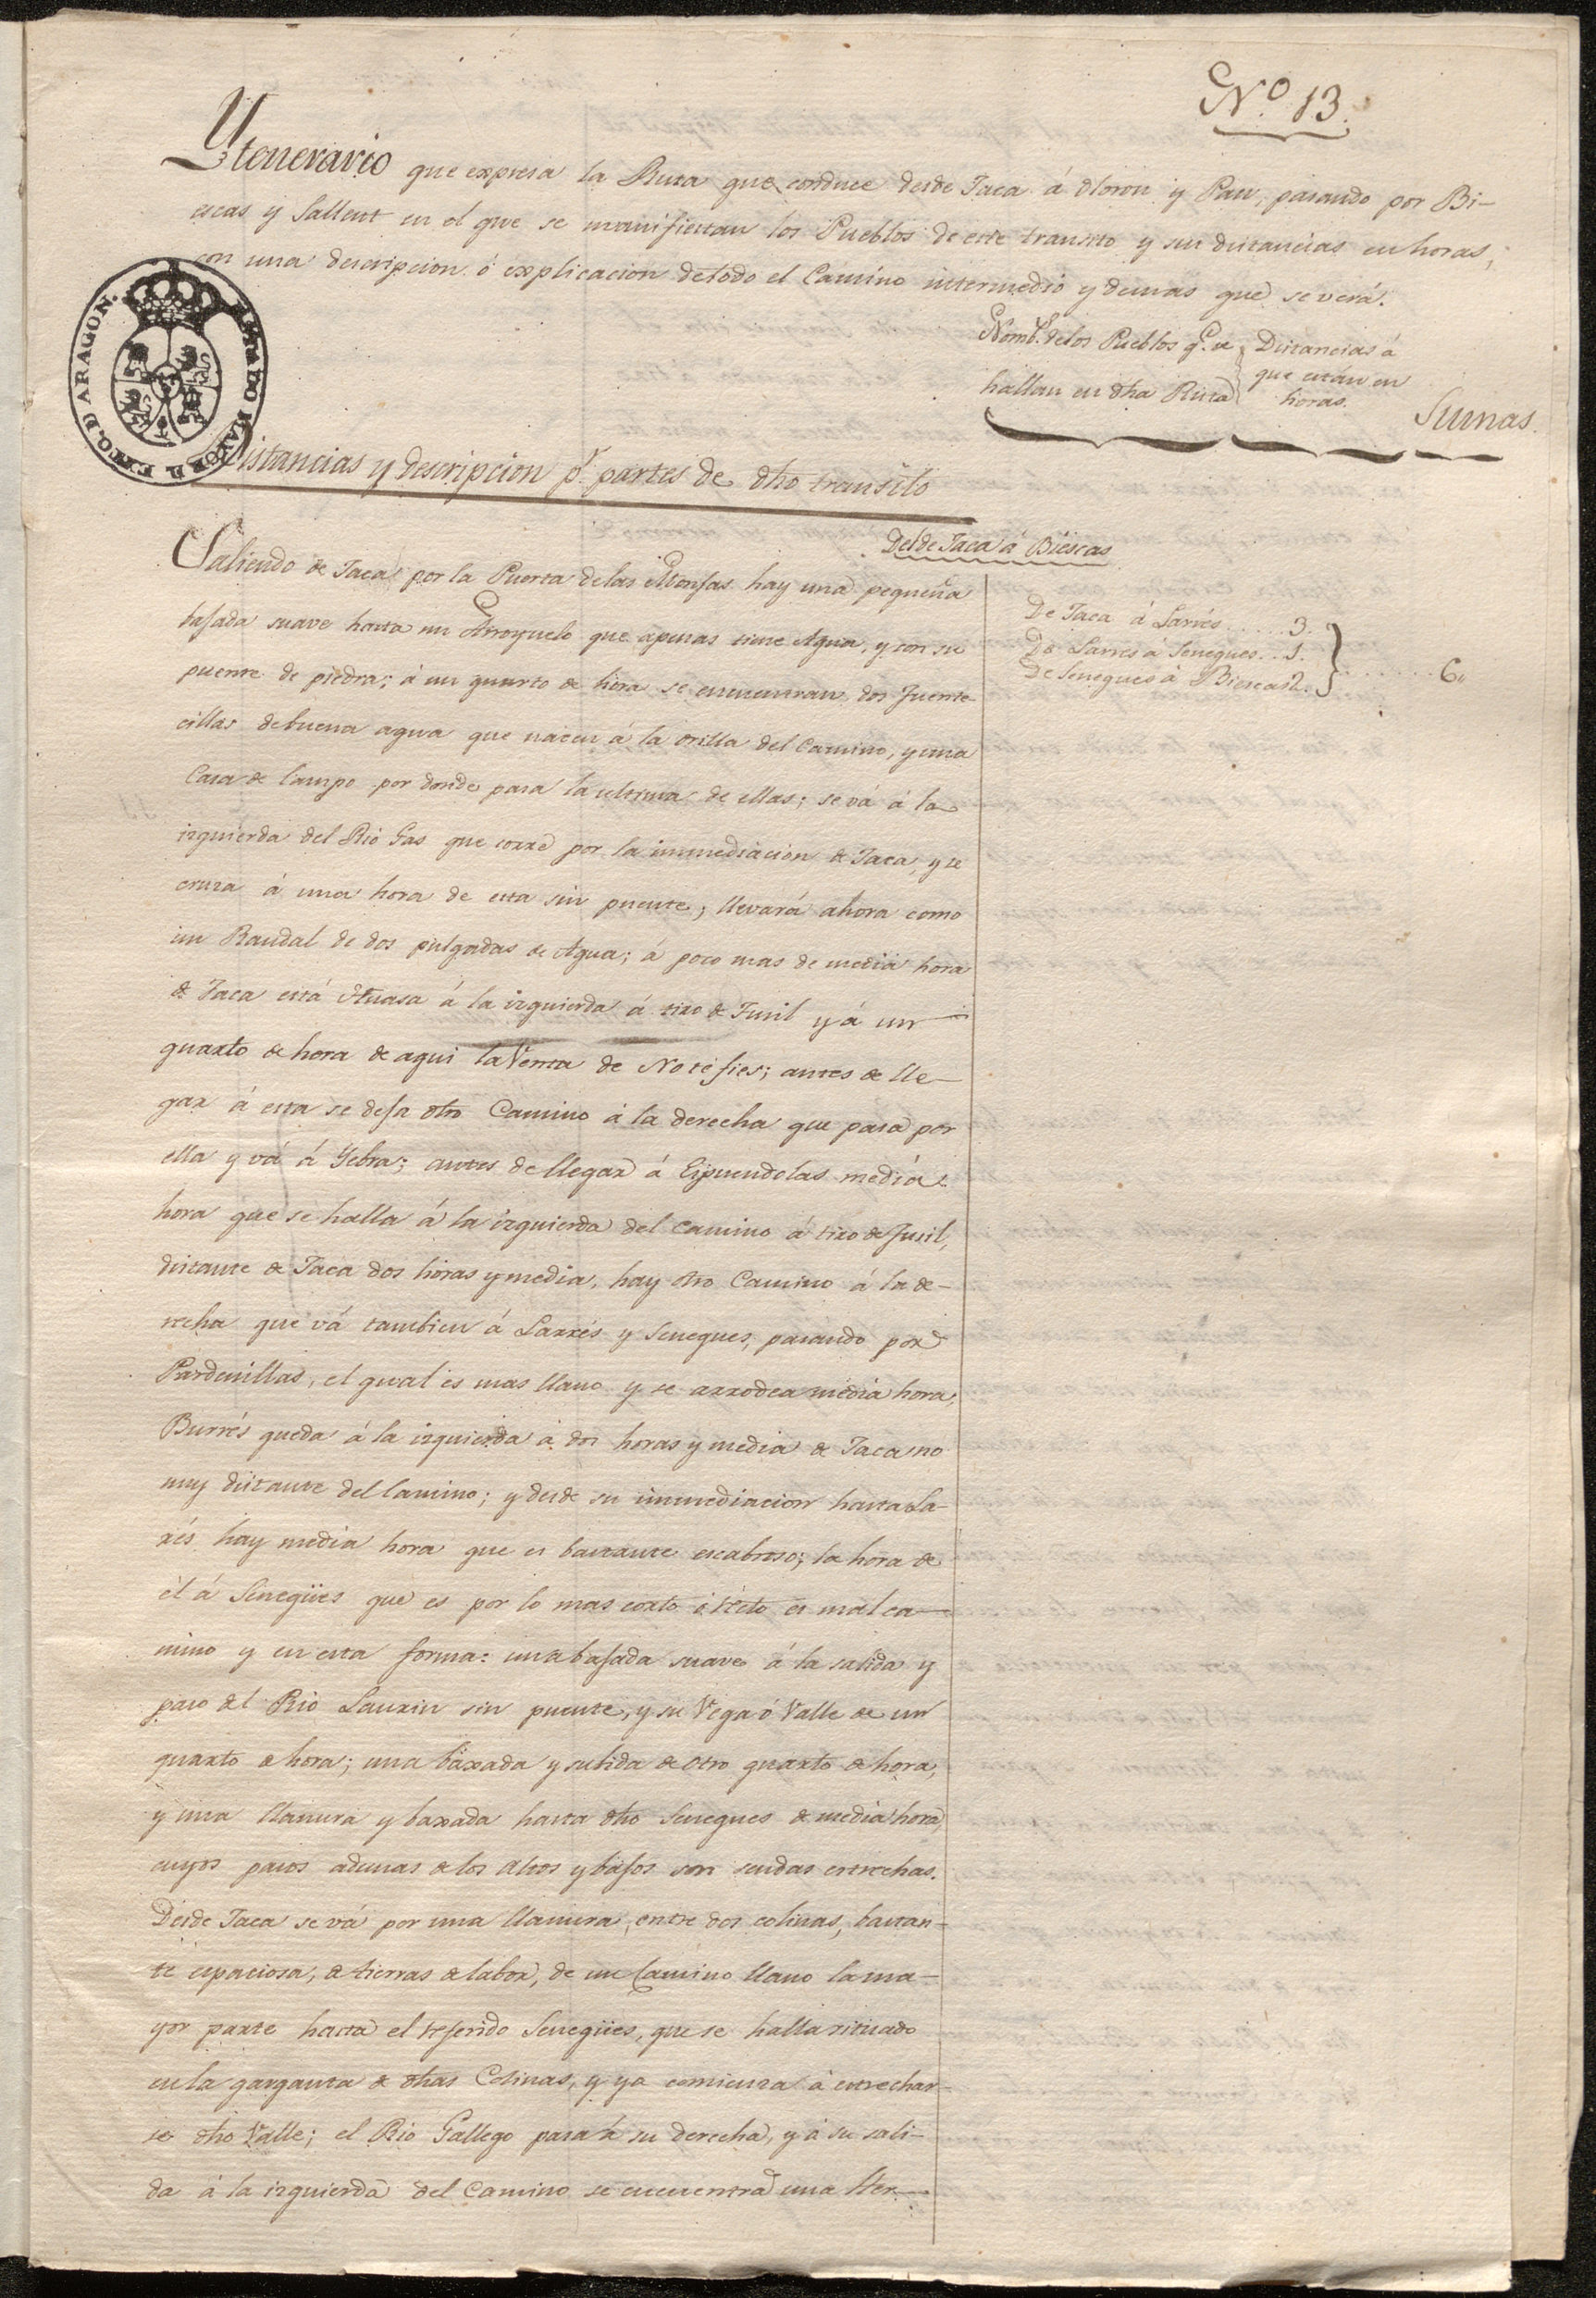 Nº. 13.
Ytenerario que expresa la Ruta que conduce desde Jaca á Oloron y Pau, pasando por Bi-
escas y Sallent en el que se manifiestan los Pueblos de este transito y sus distancias en horas,
con una descripcion ó explicacion de todo el Camino intermedio y demas que se verá.
ESTADO MAYOR D. EXTO. D ARAGON.
Nombs. de los Pueblos qe. se
hallan en dha Ruta
Distancias á
que están en
horas.
Sumas.
Distancias y descripcion pr. partes de dho transito
Desde Jaca á Biescas
Saliendo de Jaca por la Puerta de las Monjas hay una pequeña
bajada suave hasta un Arroyuelo que apenas tiene Agua, y con su
puente de piedra; á un quarto de hora se encuentran dos fuente-
cillas de buena agua que nacen á la orilla del Camino, y una
Casa de Campo por donde pasa la ultima de ellas; se vá á la
izquierda del Rio Gas que corre por la inmediacion de Jaca, y se
cruza á una hora de esta sin puente, llevará ahora como
un Raudal de dos pulgadas de Agua; á poco mas de media hora
de Jaca está Guasa á la izquierda á tiro de Fusil y á un
quarto de hora de aqui la Venta de Notefies; antes de lle-
gar á esta se deja otro Camino á la derecha que pasa por
ella y vá á Yebra; antes de llegar á Espuendolas media
hora que se halla á la izquierda del camino á tiro de fusil,
distante de Jaca dos horas y media, hay otro Camino á la de-
recha que vá tambien á Larrés y Senegues, pasando por
Pardenillas, el qual es mas llano y se arrodea media hora,
Burrés queda á la izquierda á dos horas y media de Jaca no
muy distante del Camino; y desde su inmediacion hasta La-
rés hay media hora que es bastante escabroso; la hora de
él á Senegües que es por lo mas corto ó recto es mal ca-
mino y en esta forma: una bajada suave á la salida y
paso del Rio Lauxin sin puente, y su Vega ó Valle de un
quarto de hora; una baxada y subida de otro quarto de hora,
y una llanura y baxada hasta dho Senegues de media hora,
cuyos pasos ademas de los altos y bajos son sendas estrechas.
Desde Jaca se vá por una llanura, entre dos colinas, bastan-
te espaciosa, de tierras de labor, de un Camino llano la ma-
yor parte hasta el referido Senegües, que se halla situado
en la garganta de dhas Colinas, y ya comienza á estrechar-
se dho Valle; el Rio Gallego pasa á su derecha, y á su sali-
da á la izquierda del Camino se encuentra una Her-
De Jaca á Larrés......3.
De Larres á Senegues..1.
De Senegues á Biescas 2.
........6,,